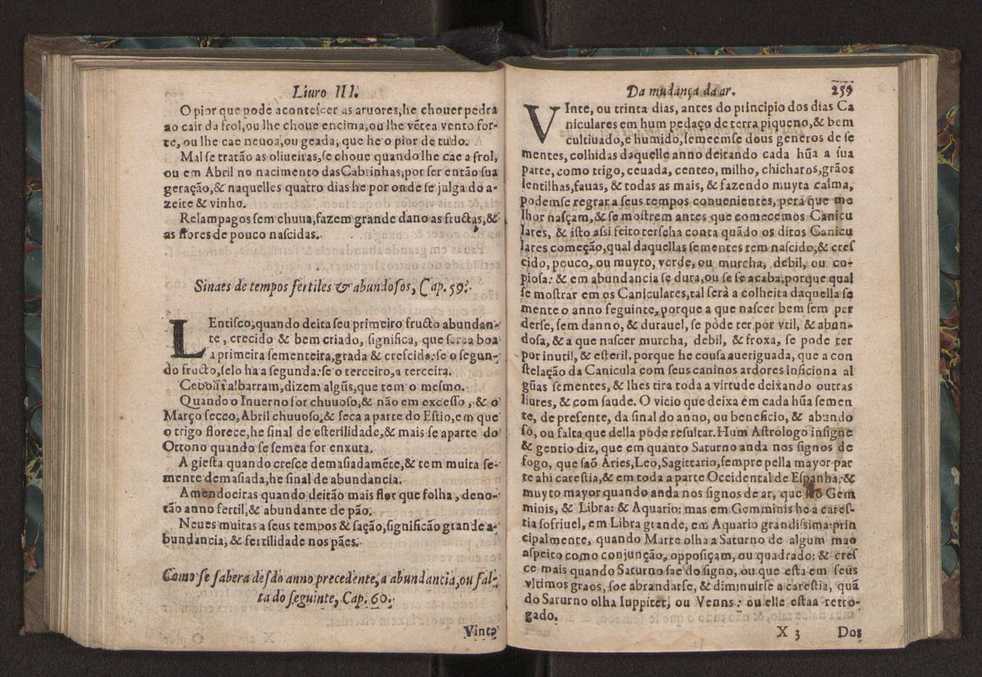 Liuro III.
O pior que pode acontescer as aruores, he chouer pedra
ao cair da frol, ou lhe choue encima, ou lhe vẽtea vento for-
te, ou lhe cae neuoa, ou geada, que he o pior de tudo.
Mal se tratão as oliueiras, se choue quando lhe cae a frol,
ou em Abril no nacimento das Cabrinhas, por ser então sua
geração, & naquelles quatro dias he por onde se julga do a-
zeite & vinho.
Relampagos sem chuua, fazem grande dano as fructas, &
as flores de pouco nascidas.
Sinaes de tempos fertiles & abundosos, Cap. 59.
LEntisco, quando deita seu primeiro fructo abundan-
te, crecido & bem criado, significa, que sera boa
a primeira sementeira, grada & crescida: se o segun-
do fructo, selo ha a segunda: se o terceiro, a terceira.
Cebolla albarram, dizem algũs, que tem o mesmo.
Quando o Inuerno for chuuoso, & não em excesso, & o
Março secco, Abril chuuoso, & seca a parte do Estio, em que
o trigo florece, he sinal de esterilidade, & mais se aparte do
Ottono quando se semea for enxuta.
A giesta quando cresce demasiadamẽte, & tem muita se-
mente demasiada, he sinal de abundancia.
Amendoeiras quando deitão mais flor que folha, deno-
tão anno fertil, & abundante de pão.
Neues muitas a seus tempos & sação, significão grande a-
bundancia, & fertilidade nos pães.
Como se sabera desdo anno precedente, a abundancia, ou fal-
ta do seguinte, Cap. 60.
Vinte
Da mudança da ar. 259
VInte, ou trinta dias, antes do principio dos dias Ca
niculares em hum pedaço de terra piqueno, & bem
cultiuado, e humido, semeemse dous generos de se
mentes, colhidas daquelle anno deitando cada hũa a sua
parte, como trigo, ceuada, centeo, milho, chicharos, grãos
lentilhas, fauas, & todas as mais, & fazendo muyta calma,
podemse regrar a seus tempos conuenientes, pera que me
lhor nasçam, & se mostrem antes que comecemos Canicu
lares, & isto assi feito terseha conta quãdo os ditos Canicu
lares começão, qual daquellas sementes tem nascido, & cres
cido, pouco, ou muyto, verde, ou murcha, debil, ou co-
piosa: & em abundancia se dura, ou se se acaba, porque qual
se mostrar em os Caniculares, tal será a colheita daquella se
mente o anno seguinte, porque a que nascer bem sem per
derse, sem danno, & durauel, se póde ter por vtil, & abun-
dosa, & a que nascer murcha, debil, & froxa, se pode ter
por inutil, & esteril. porque he cousa aueriguada, que a con
stelação da Canicula com seus caninos ardores insiciona al
gũas sementes, & lhes tira toda a virtude deixando outras
liures, & com saude. O vicio que deixa ém cada hũa semen
te, de presente, da sinal do anno, ou beneficio, & abundo
so, ou falta que della póde resultar. Hum Astrólogo insigne
& gentio diz, que em quanto Saturno anda nos signos de
fogo, que saõ Aries, Leo, Sagittario, sempre pella mayor par
te ahi carestia, & em toda a parte Occidental de Espanha: &
muyto mayor quando anda nos signos de ar, que são Gem
minis, & Libra: & Aquario: mas em Gemminis he a cares-
tia sofriuel, em Libra grande, em Aquario grandissima: prin
cipalmente, quando Marte olha a Saturno de algum mao
aspeito como conjunção, opposiçam, ou quadrado: & cres
ce mais quando Saturno sae do signo, ou que esta em seus
vltimos graos, soe abrandarse, & diminuirse a carestia, quã
do Saturno olha Iuppiter, ou Venus: ou elle estaa retro-
gado.
X 3 Dos